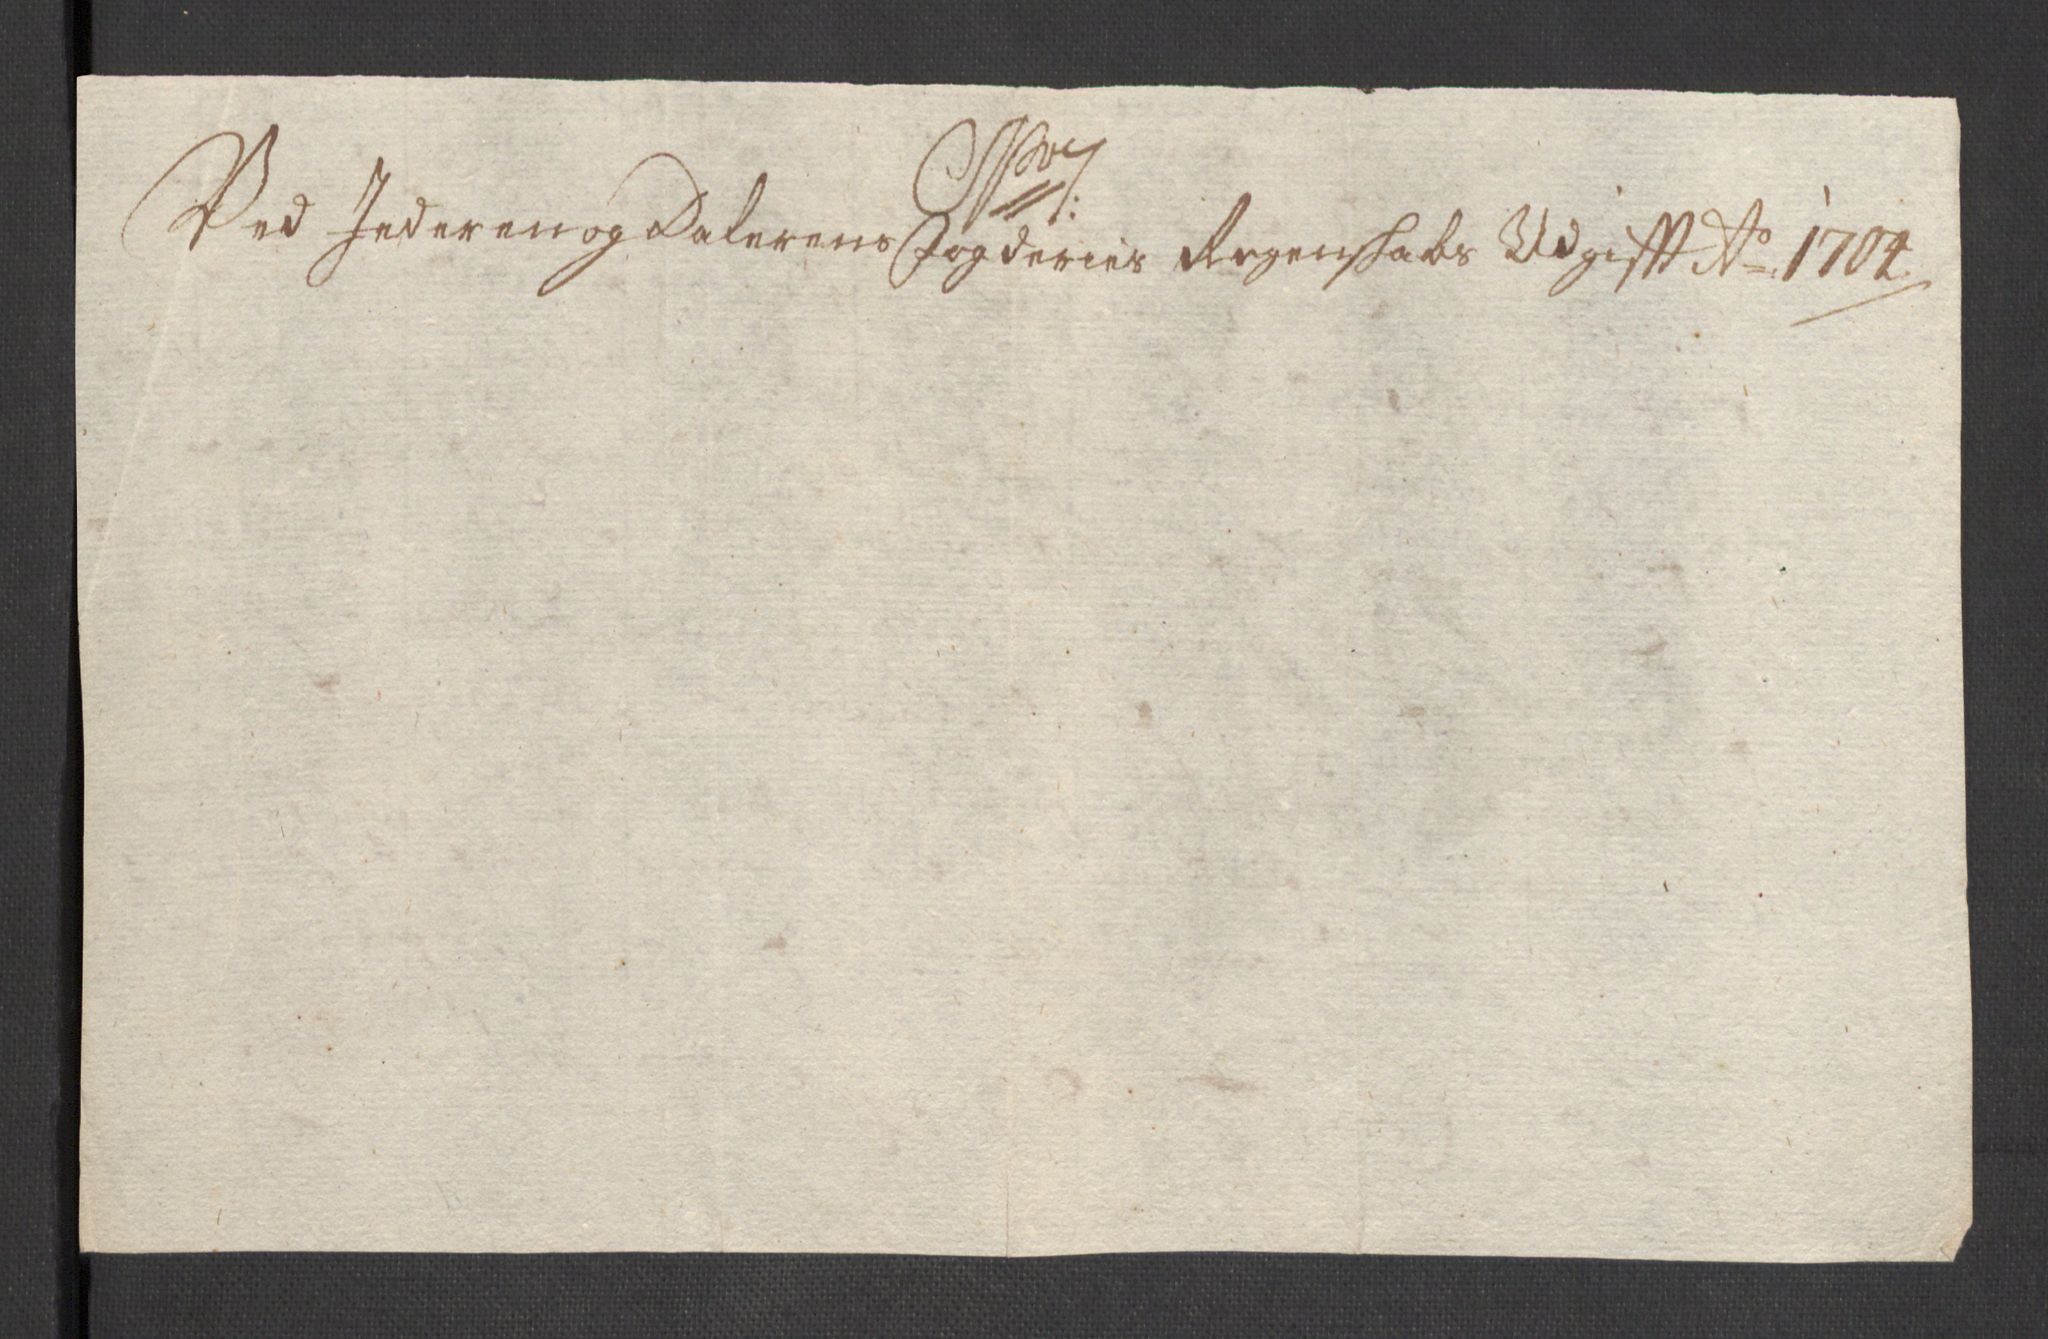 Ved Jederen og Dalerens Fogderies Regenskabs Udgifft Ao. 1704